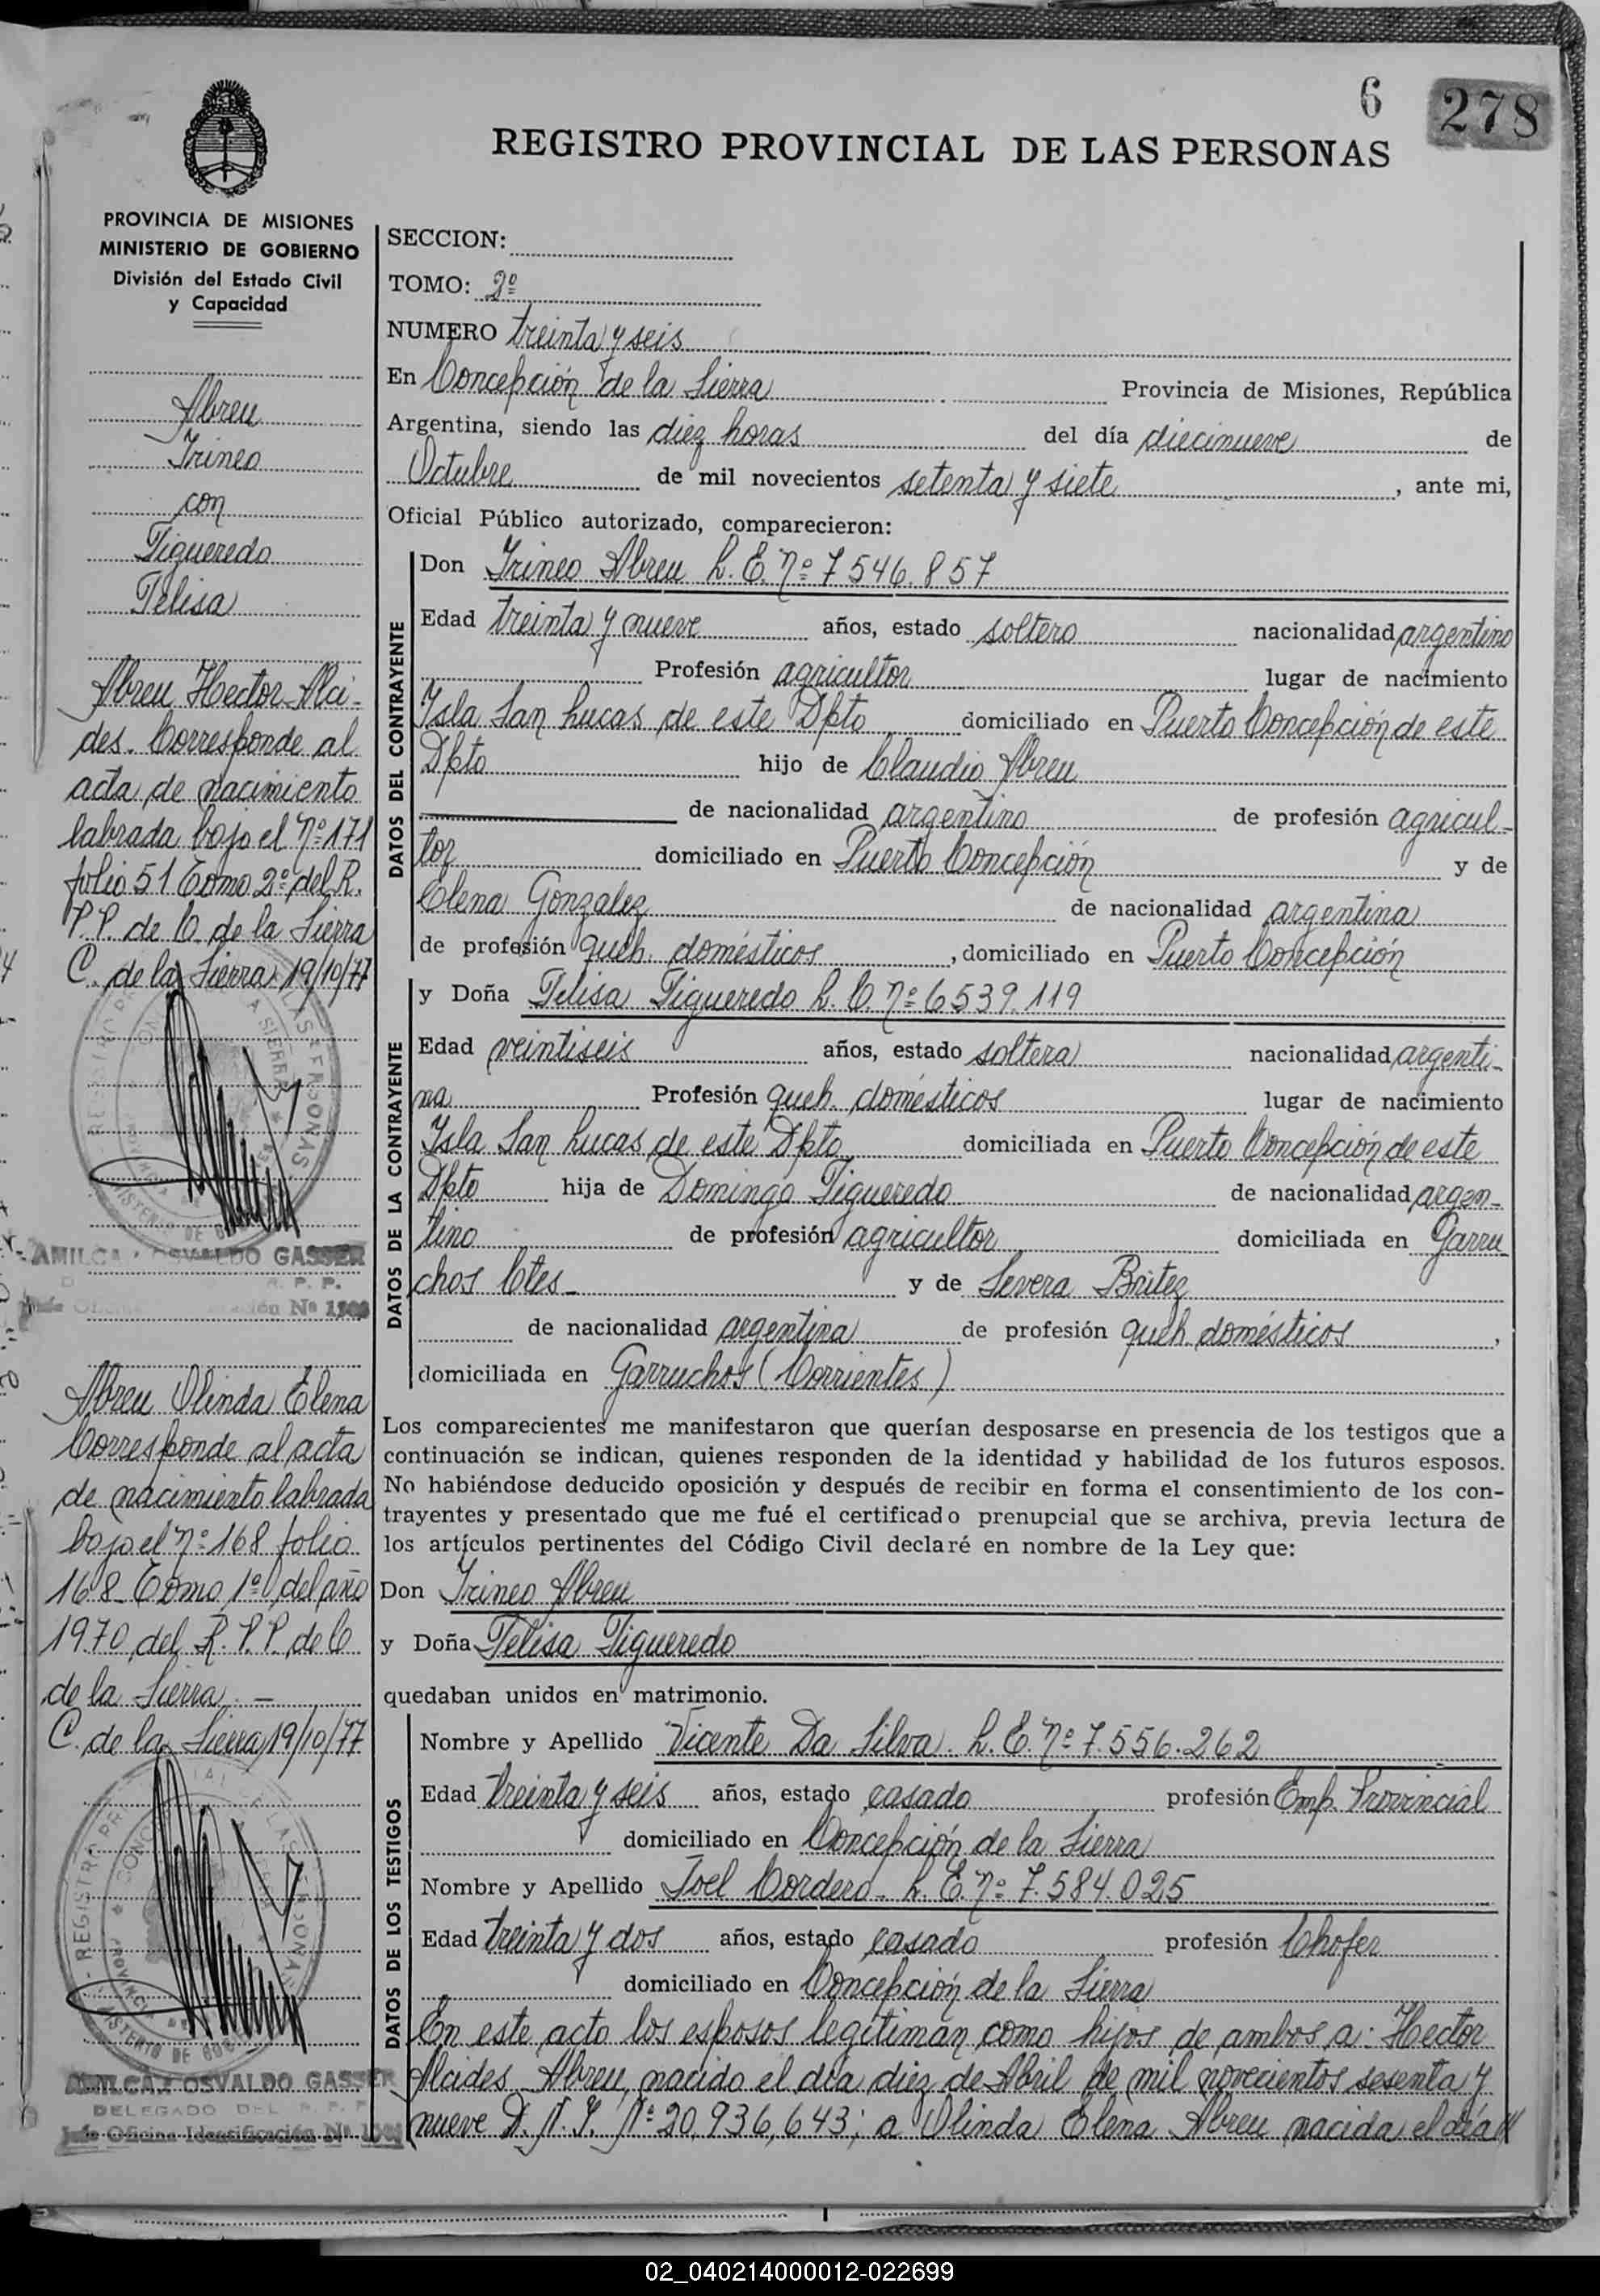 6 278
REGISTRO PROVINCIAL DE LAS PERSONAS
PROVINCIA DE MISIONES
MINISTERIO DE GOBIERNO
División del Estado Civil
y Capacidad
Abreu
Irineo
con
Figueredo
Felisa
Abreu Hector Alci-
des. Corresponde al
acta de nacimiento
labrada bajo el Nº 171
folio 51 Tomo 2º del R.
P.P. de C. de la Sierra
C. de la Sierra 19/10/77
AMILCAR OSVALDO GASSER
Abreu Olinda Elena
Corresponde al acta
de nacimiento labrada
bajo el Nº 168 folio
168 Tomo 1º del año
1970 del R.P.P. de C
de la Sierra. —
C. de la Sierra 19/10/77
AMILCAR OSVALDO GASSER
DELEGADO DEL R. P. P.
Jefe Oficina Identificación Nº
SECCION:
TOMO: 2º
NUMERO treinta y seis
En Concepción de la Sierra Provincia de Misiones, República
Argentina, siendo las diez horas del día diecinueve de
Octubre de mil novecientos setenta y siete, ante mi,
Oficial Público autorizado, comparecieron:
DATOS DEL CONTRAYENTE
Don Irineo Abreu L.E. Nº 7546.857
Edad treinta y nueve años, estado soltero nacionalidad argentino
Profesión agricultor lugar de nacimiento
Isla San Lucas de este Dpto domiciliado en Puerto Concepción de este
Dpto hijo de Claudio Abreu
de nacionalidad argentino de profesión agricul-
tor domiciliado en Puerto Concepción y de
Elena Gonzalez de nacionalidad argentina
de profesión queh. domésticos, domiciliado en Puerto Concepción
DATOS DE LA CONTRAYENTE
y Doña Felisa Figueredo L.C. Nº 6539.119
Edad veintiseis años, estado soltera nacionalidad argenti-
na Profesión queh. domésticos lugar de nacimiento
Isla San Lucas de este Dpto domiciliada en Puerto Concepción de este
Dpto hija de Domingo Figueredo de nacionalidad argen-
tino de profesión agricultor domiciliada en Garru
chos Ctes- y de Severa Britez
de nacionalidad argentina de profesión queh. domésticos,
domiciliada en Garruchos (Corrientes)
Los comparecientes me manifestaron que querían desposarse en presencia de los testigos que a
continuación se indican, quienes responden de la identidad y habilidad de los futuros esposos.
No habiéndose deducido oposición y después de recibir en forma el consentimiento de los con-
trayentes y presentado que me fué el certificado prenupcial que se archiva, previa lectura de
los artículos pertinentes del Código Civil declaré en nombre de la Ley que:
Don Irineo Abreu
y Doña Felisa Figueredo
quedaban unidos en matrimonio.
DATOS DE LOS TESTIGOS
Nombre y Apellido Vicente Da Silva L.E. Nº 7.556.262
Edad treinta y seis años, estado casado profesión Emp. Provincial
domiciliado en Concepción de la Sierra
Nombre y Apellido Joel Cordero- L.E. Nº 7.584.025
Edad treinta y dos años, estado casado profesión Chofer
domiciliado en Concepción de la Sierra
En este acto los esposos legitiman como hijos de ambos a: Hector
Alcides Abreu, nacido el día diez de Abril de mil novecientos sesenta y
nueve D.N.I. Nº 20.936,643; a Olinda Elena Abreu nacida el día
02_040214000012-022699